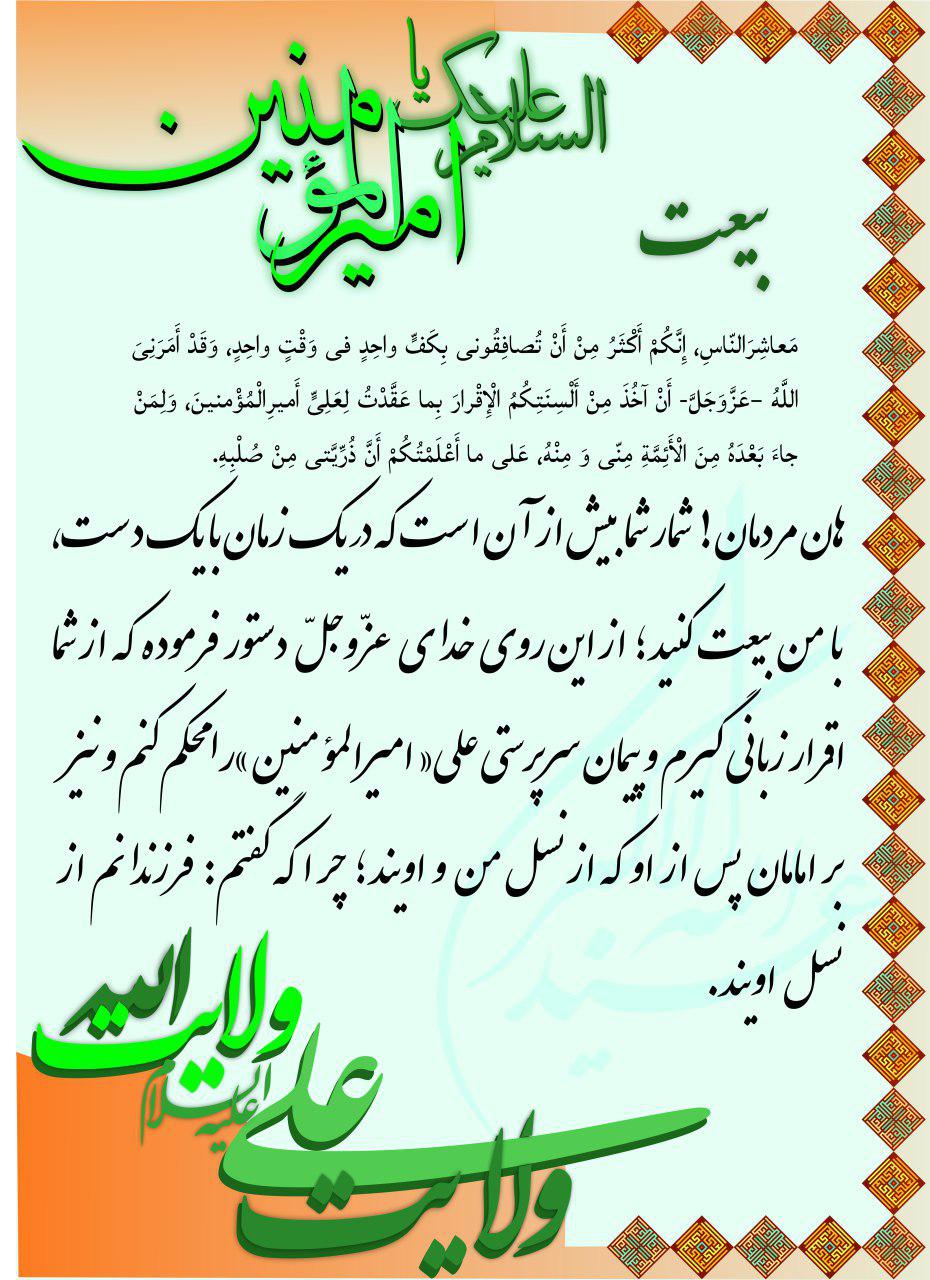 السلام علیک یا
امیرالمؤمنین
بیعت
مَعاشِرَالنّاسِ، إِنَّکُمْ أَکْثَرُ مِنْ أَنْ تُصافِقُونی بِکَفٍّ واحِدٍ فی وَقْتٍ واحِدٍ، وَقَدْ أَمَرَنِیَ
اللَّهُ –عَزَّوَجَلَّ- أَنْ آخُذَ مِنْ أَلْسِنَتِکُمُ الْإِقْرارَ بِما عَقَّدْتُ لِعَلِیٍّ أَمیرِالْمُؤْمنینَ، وَلِمَنْ
جاءَ بَعْدَهُ مِنَ الْأَئِمَّةِ مِنّی وَ مِنْهُ، عَلی ما أَعْلَمْتُکُمْ أَنَّ ذُرِّیَّتی مِنْ صُلْبِهِ.
هان مردمان! شمار شما بیش از آن است که در یک زمان با یک دست،
با من بیعت کنید؛ از این روی خدای عزّوجلّ دستور فرموده که از شما
اقرار زبانی گیرم و پیمان سرپرستی علی «امیرالمؤمنین» را محکم کنم و نیز
بر امامان پس از او که از نسل من و اویند؛ چرا که گفتم: فرزندانم از
نسل اویند.
ولایت الله
ولایت علی
علیه السلام